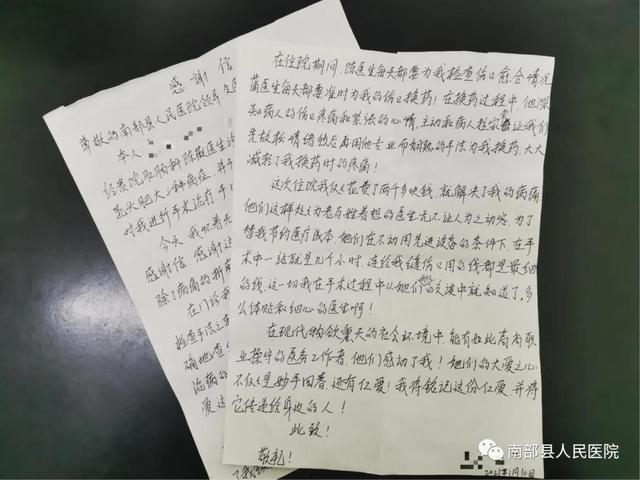 感谢信
尊敬的南部县人民医院领导
本人
贵院肛肠科陈
乳头肥大三种病症，并
对我进行手术治疗
今天，我怀着
感谢信，感谢
除了病痛的折
在门诊
检查手法
确地查
治病的
爱这
在住院期间，陈医生每天都要为我检查伤口愈合情况
蒲医生每天都要准时为我的伤口换药！在换药过程中，他深
知病人的伤口疼痛和紧张的心情，主动和病人拉家常让我们
先放松情绪然后再用他专业而娴熟的手法为我换药，大大
减轻了我换药时的疼痛！
这次住院我仅仅花费了两千多块钱，就解决了我的病痛，
他们这样处处为老百姓着想的医生无不让人为之动容，为了
替我节约医疗成本，她们在不动用先进设备的条件下，在手
术中一站就是几个小时，连给我缝伤口用的线都是最细
的线，这一切我在手术过程中从她们的交谈中就知道了。多
么体贴和细心的医生啊！
在现代物欲熏天的社会环境中，能有如此高尚职
业操守的医务工作者，他们感动了我！她们的大爱之心
不仅仅是妙手回春，还有仁爱！我将铭记这份仁爱，并将
它传递给身边的人！
此致！
敬礼！
南部县人民医院